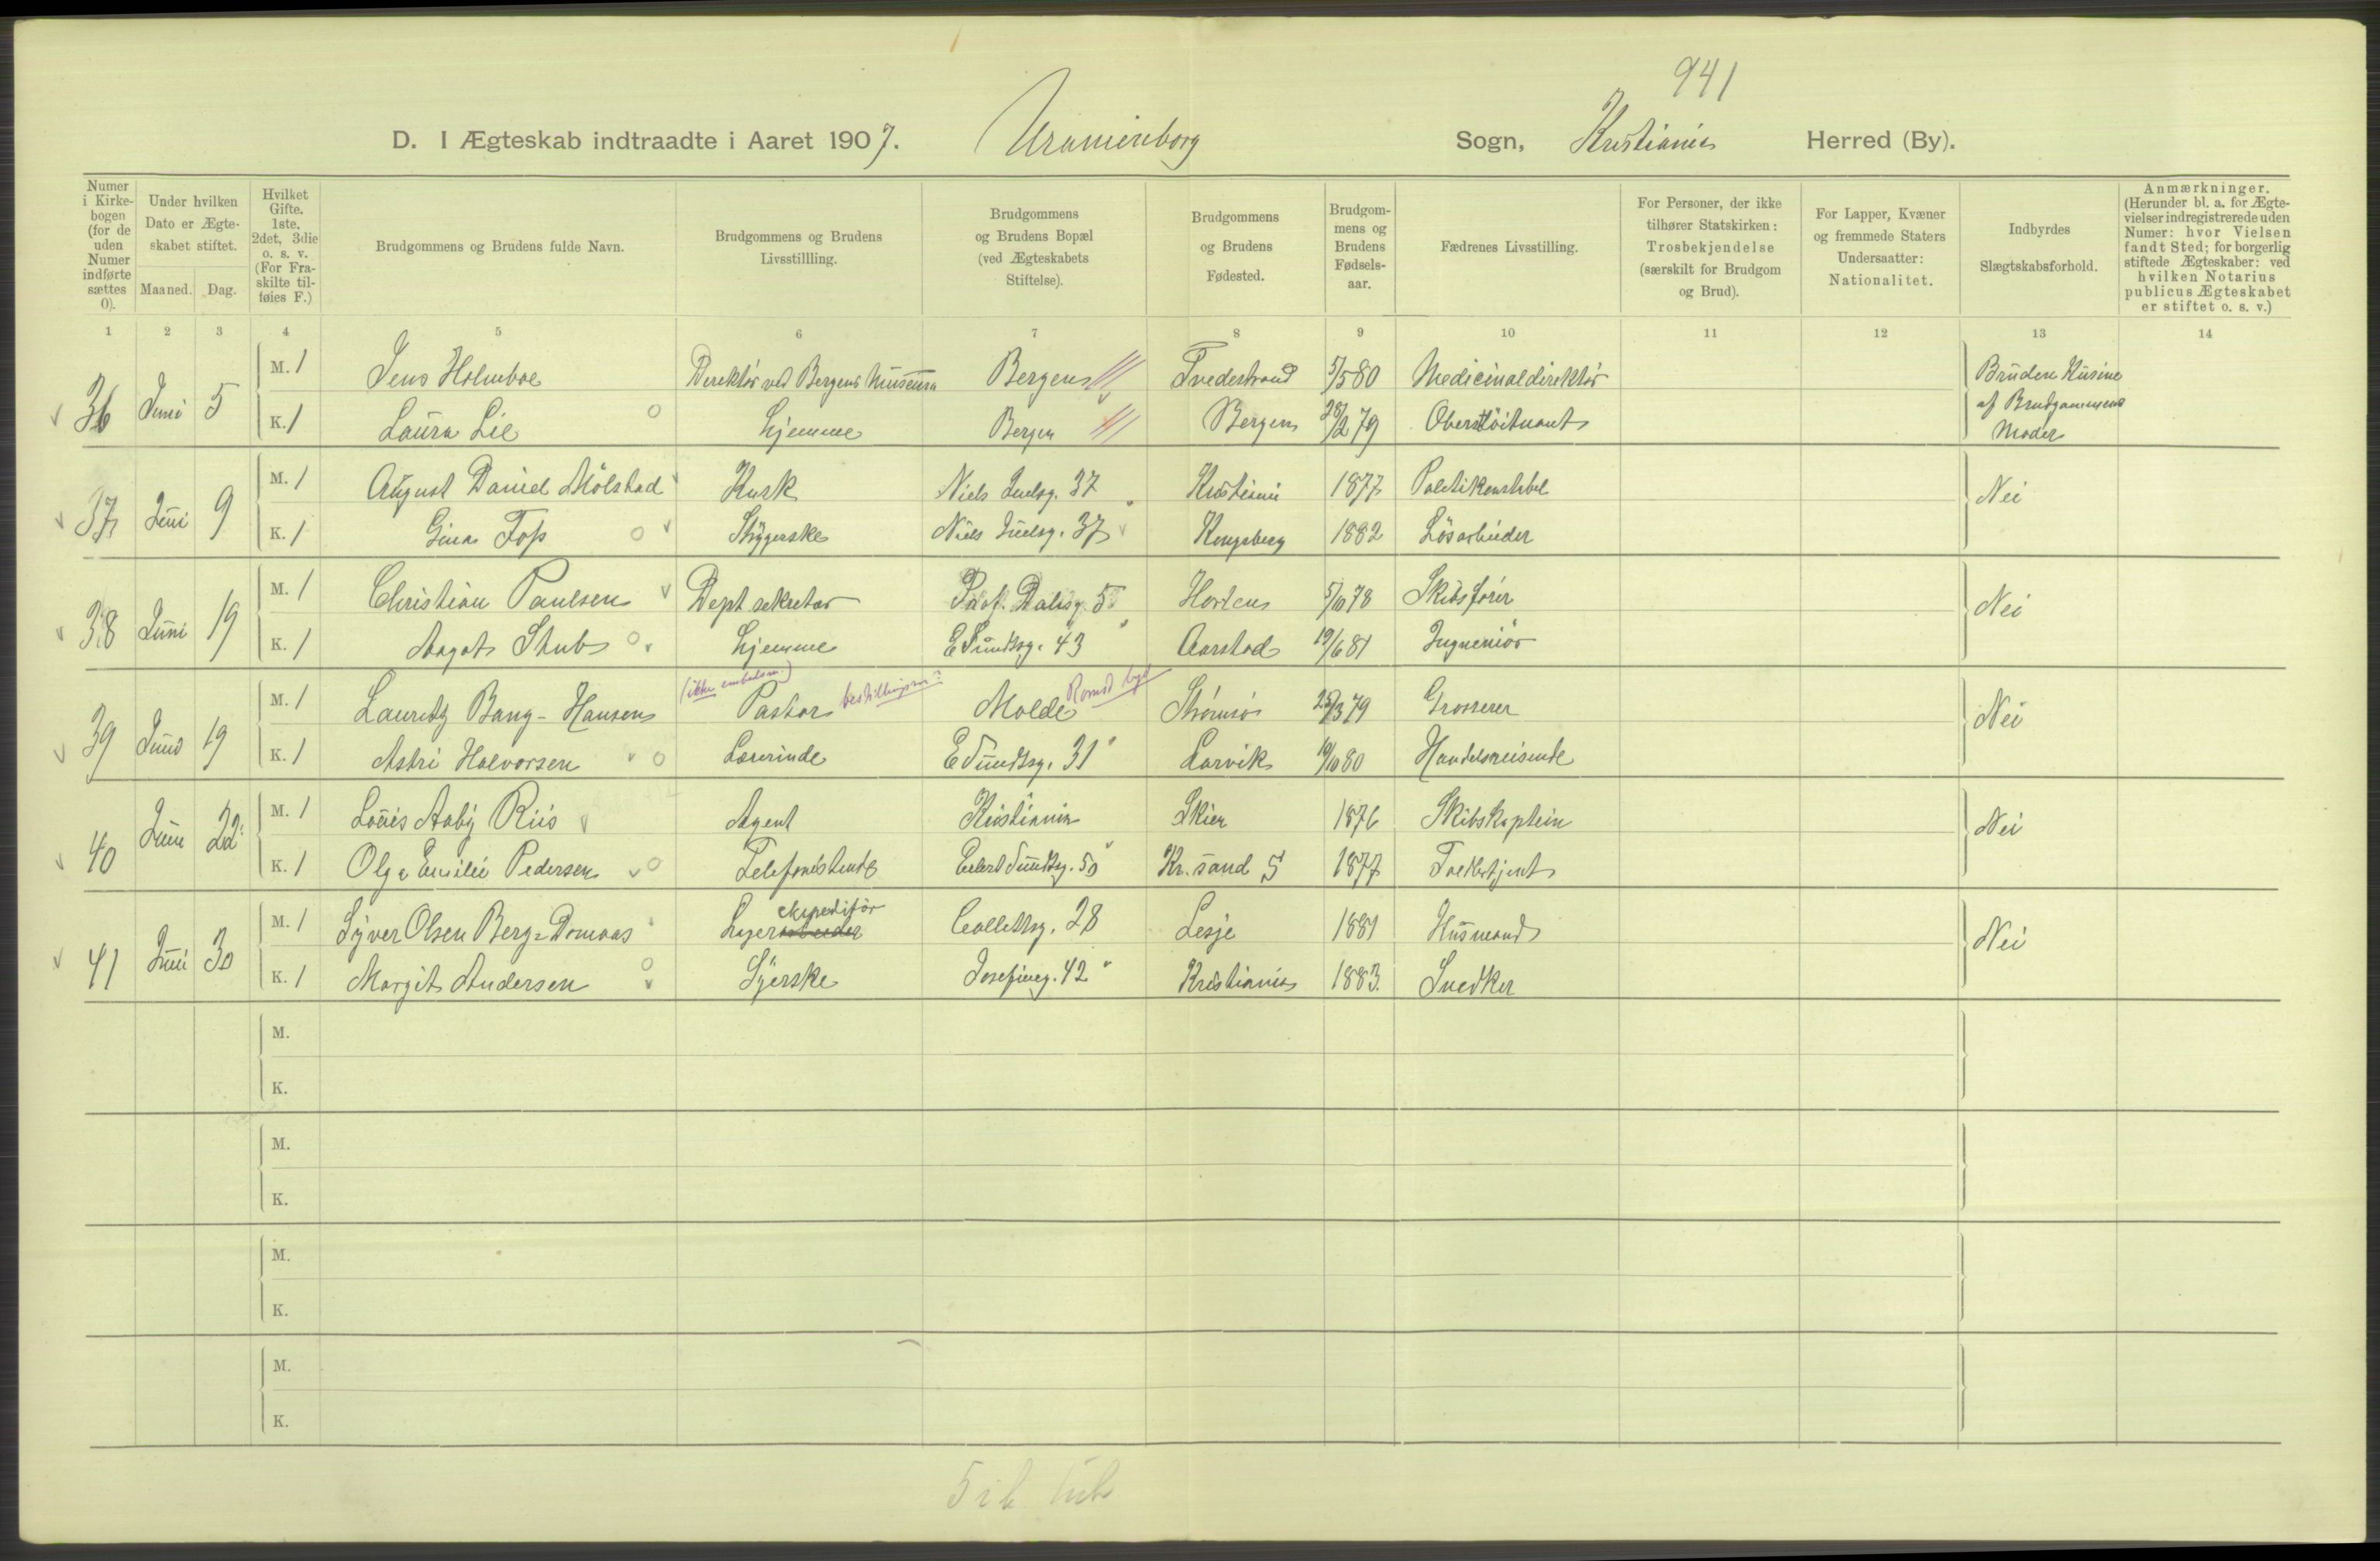 941
D. I Ægteskab indtraadte i Aaret 1907. Uranienborg Sogn, Kristiania Herred (By).
Numer i Kirkebogen (for de uden Numer indførte sættes 0).
Under hvilken Dato er Ægteskabet stiftet.
Maaned. Dag.
Hvilket Gifte. 1ste. 2det, 3die o. s. v. (For Fraskilte tilføies F.)
Brudgommens og Brudens fulde Navn.
Brudgommens og Brudens Livsstillling.
Brudgommens og Brudens Bopæl (ved Ægteskabets Stiftelse).
Brudgommens og Brudens Fødested.
Brudgommens og Brudens Fødselsaar.
Fædrenes Livsstilling.
For Personer, der ikke tilhører Statskirken: Trosbekjendelse (særskilt for Brudgom og Brud).
For Lapper, Kvæner og fremmede Staters Undersaatter: Nationalitet.
Indbyrdes Slægtskabsforhold.
Anmærkninger. (Herunder bl. a. for Ægtevielser indregistrerede uden Numer: hvor Vielsen fandt Sted; for borgerlig stiftede Ægteskaber: ved hvilken Notarius publicus Ægteskabet er stiftet o. s. v.)
1 2 3 4 5 6 7 8 9 10 11 12 13 14
36 Juni 5 M. 1 Jens Holmboe Direktör ved Bergens Museum Bergen Tvedestrand 5/5 80 Medicinaldirektör Bruden Kusine af Brudgommens Moder
K. 1 Laura Lie Hjemme Bergen Bergen 28/2 79 Oberstlöitnant
37 Juni 9 M. 1 August Daniel Mölstad Kusk Niels Juelsg. 37 Kristiania 1877 Politikonstabel Nei
K. 1 Gina Foss Strygerske Niels Juelsg. 37 Kongsberg 1882 Lösarbeider
38 Juni 19 M. 1 Christian Paulsen Dept sekretær Prof. Dahlsg. 5 Horten 5/10 78 Skibsförer Nei
K. 1 Aagot Stub Hjemme E Sundtsg. 43 Aarstad 19/6 81 Ingeniör
39 Juni 19 M. 1 Lauritz Bang-Hansen (ikke embedsm.) Pastor bestillingsm? Molde Romsd byd Strömsö 25/3 79 Grosserer Nei
K. 1 Astri Halvorsen Lærerinde E Sundtsg. 31 Larvik 19/10 80 Handelsreisende
40 Juni 22 M. 1 Louis Aaby Riis Agent Kristiania Skien 1876 Skibskaptein Nei
K. 1 Olga Emilie Pedersen Telefonistinde Eilert Sundtsg. 50 Kr. sand S 1877 Toldbetjent
41 Juni 30 M. 1 Syver Olsen Berg-Domaas Lagerarbeider ekspeditör Collettsg. 28 Lesje 1881 Husmand Nei
K. 1 Margit Andersen Syerske Josefineg. 42 Kristiania 1883. Snedker
M.
K.
M.
K.
M.
K.
M.
K.